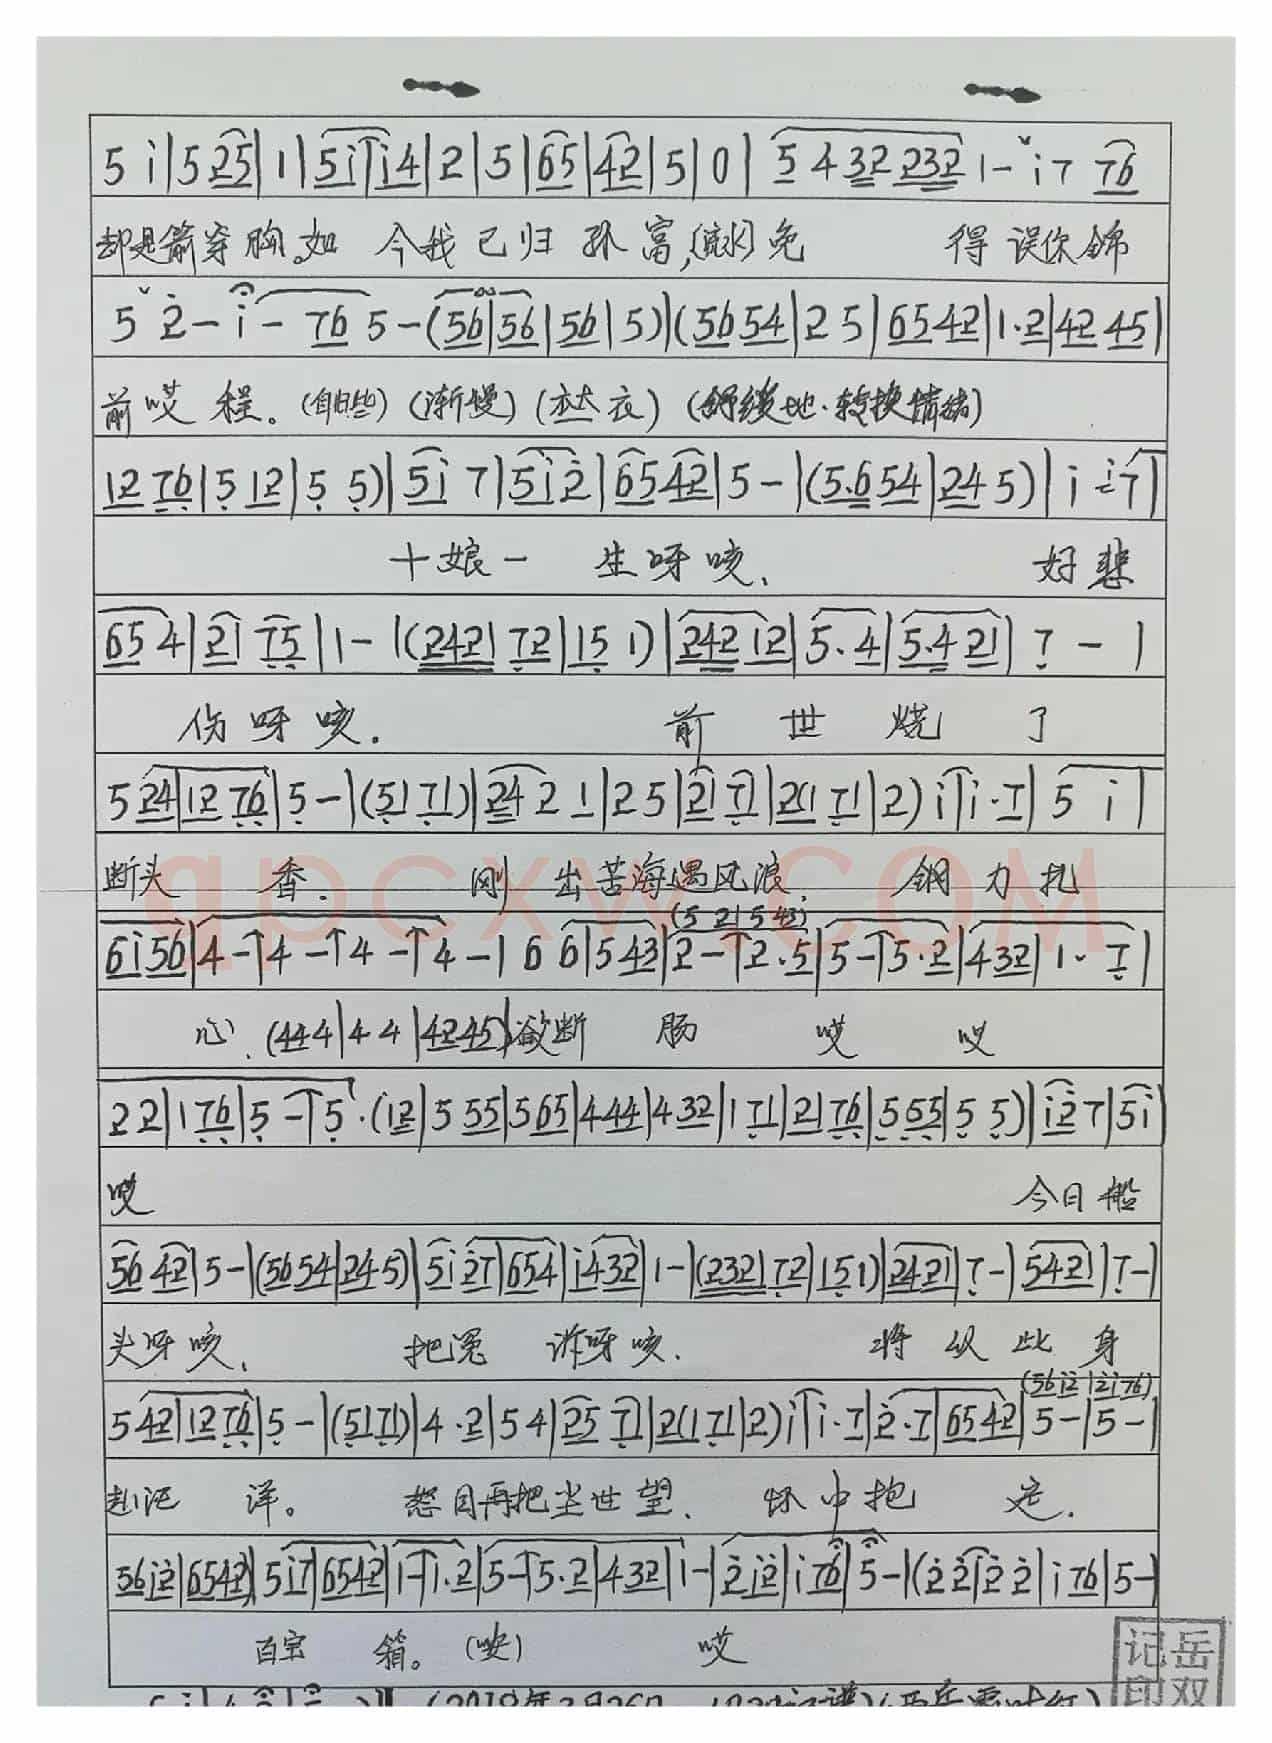 5 i | 5 25 | 1 | 5i | i4 | 2 | 5 | 65 | 42 | 5 | 0 | 5 4 32 232 1 - ˇ i 7 76
却是箭穿胸。如 今我已归 孙富,(流水)免 得 误你錦
5 ˇ 2 - i - 76 5 - (56 | 56 | 56 | 5) | (56 54 | 2 5 | 65 42 | 1·2 | 42 45 |
前哎 程。(自由些) (渐慢) (衣) (舒缓地·转换情绪)
12 76 | 5 12 | 5 5) | 5i 7 | 5i 2 | 65 42 | 5 - | (5·6 54 | 24 5) | i i 7 |
十娘一 生呀咳、 好悲
65 4 | 21 75 | 1 - | (242 72 | 15 1) | 242 12 | 5·4 | 5·4 21 | 7 - |
伤呀咳. 前 世 烧 了
5 24 | 12 76 | 5 - | (51 71) | 24 2 1 | 2 5 | 21 71 | 2(1 71 | 2) i | i·7 | 5 i |
断头 香. 刚 出苦海遇风浪、 钢刀扎
qpcxw.COM
(5 2 | 5 43)
6i 56 | 4 - | 4 - | 4 - | 4 - | 6 6 | 5 43 | 2 - | 2·5 | 5 - | 5·2 | 4 32 | 1·7 |
心、(44 4 | 4 4 | 42 45) 欲断 肠 哎 哎
2 2 | 1 76 | 5 - | 5·(12 | 5 55 | 5 65 | 4 44 | 4 32 | 1 71 | 21 76 | 5 55 | 5 5) | i2 7 | 5i |
哎 今日船
56 42 | 5 - | (56 54 | 24 5) | 5i 27 | 65 4 | i4 32 | 1 - | (232 72 | 15 1) | 24 21 | 7 - | 54 21 | 7 - |
头呀咳、 把冤 诉呀咳. 将 从 此 身
(56 i2 | 2i 76)
5 42 | 12 76 | 5 - | (51 71) | 4·2 | 5 4 | 25 71 | 2(1 71 | 2) i | i·7 | 2·7 | 65 42 | 5 - | 5 - |
赴汪 洋。 怒目再把尘世望、 怀中抱 定.
56 i2 | 65 42 | 5 i7 | 65 42 | 1 - | 1·2 | 5 - | 5·2 | 4 32 | 1 - | 2 i2 | i 76 | 5 - | (2 2 | 2 2 | i 76 | 5 -
百宝 箱。 哎
记岳
印双